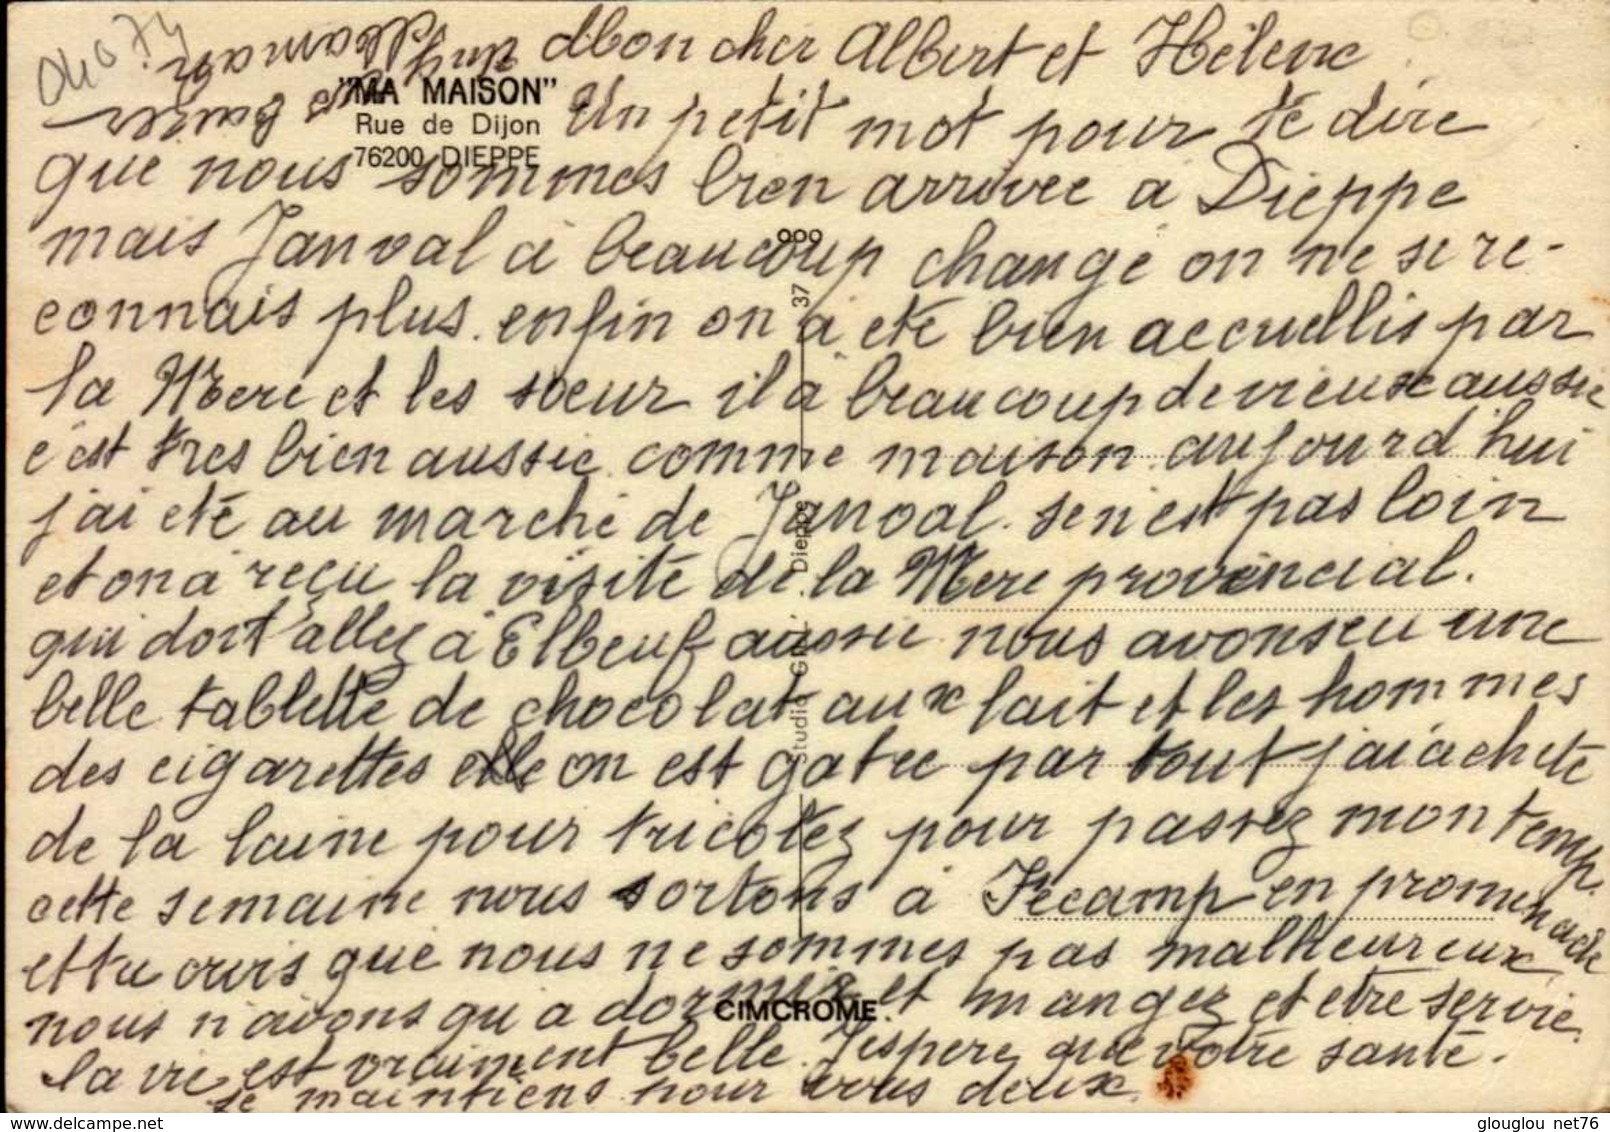 Mon cher Albert et Hélène
"MA MAISON"
Rue de Dijon
76200 DIEPPE
Un petit mot pour te dire
que nous sommes bien arrivée a Dieppe
mais Janval à beaucoup changé on ne se re-
connais plus. enfin on à été bien accuellis par
la Mere et les sœur il à beaucoup de vieuxe aussie
c'est tres bien aussie comme maison aujourd'hui
j'ai été au marché de Janval. se n'est pas loin
et on à reçu la visite de la Mere provincial.
qui doit allez à Elbeuf aussie nous avons eu une
belle tablette de chocolat aux lait et les hommes
des cigarettes on est gatée par tout j'ai acheté
de la laine pour tricotez pour passez mon temp.
cette semaine nous sortons à Fecamp en promenade
et tu vois que nous ne sommes pas malheureuxe
nous n'avons qu'a dormir et mangez et etre servie.
la vie est vraiment belle. J'espere que votre santé.
se maintiens pour vous deux.
000
37
Studio GIL Dieppe
CIMCROME.
www.delcampe.net
glouglou_net76